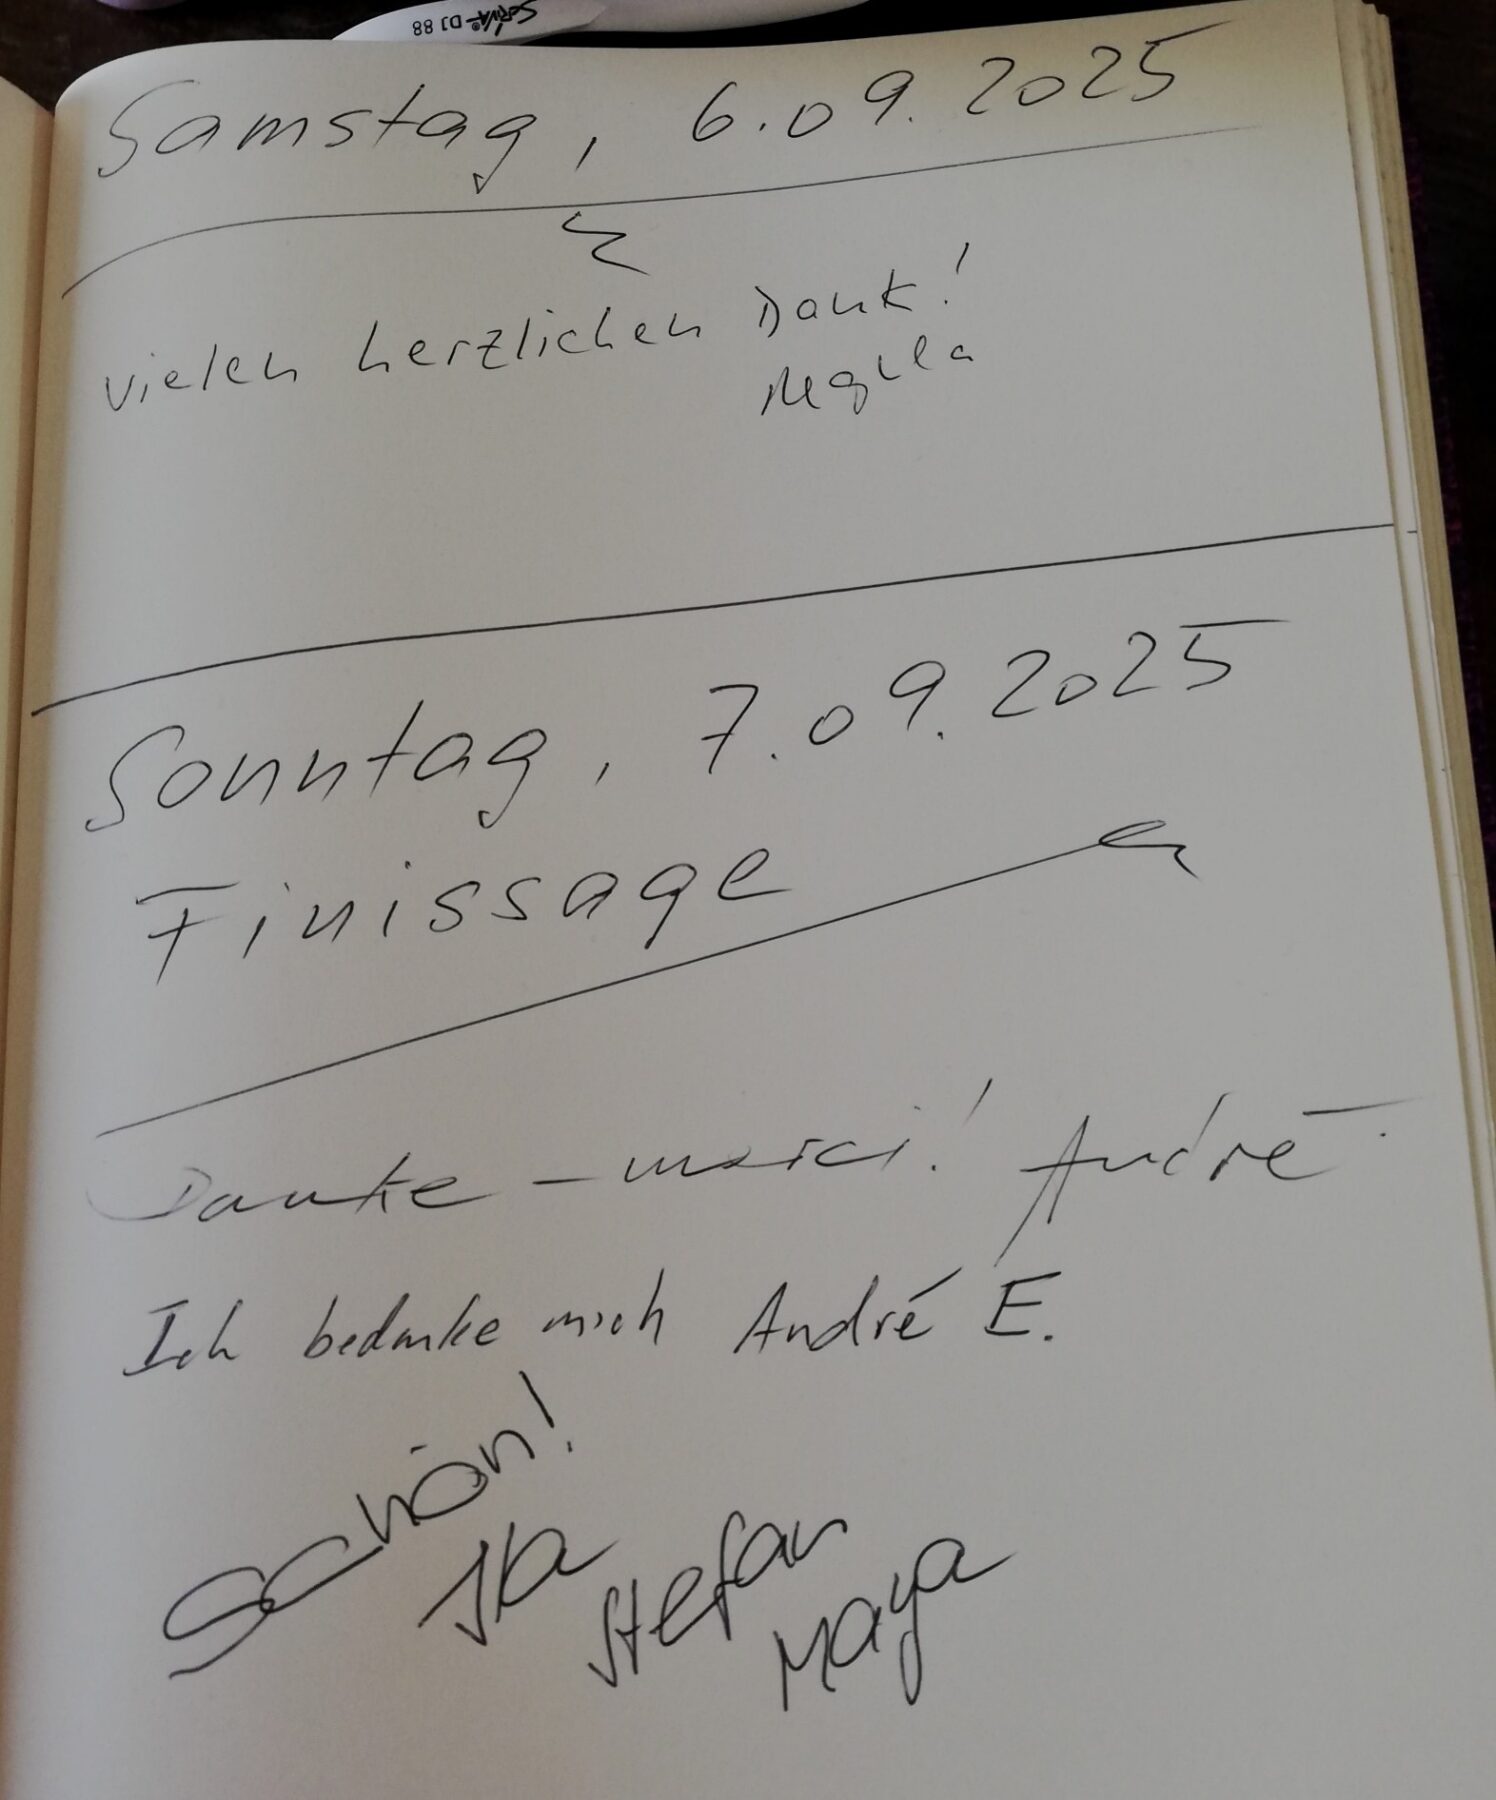 SORIVA® DJ 88
Samstag, 6.09.2025
vielen herzlichen Dank!
Regula
Sonntag, 7.09.2025
Finissage
Danke – merci! André
Ich bedanke mich André E.
Schön!
Stefan
Maya